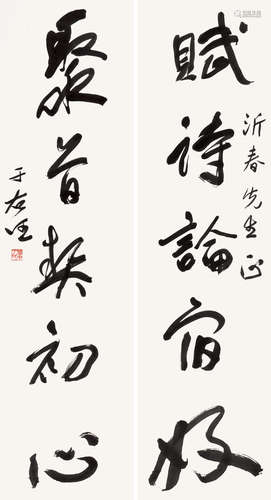 沂春先生正
賦詩論宿好
聚首契初心
于右任